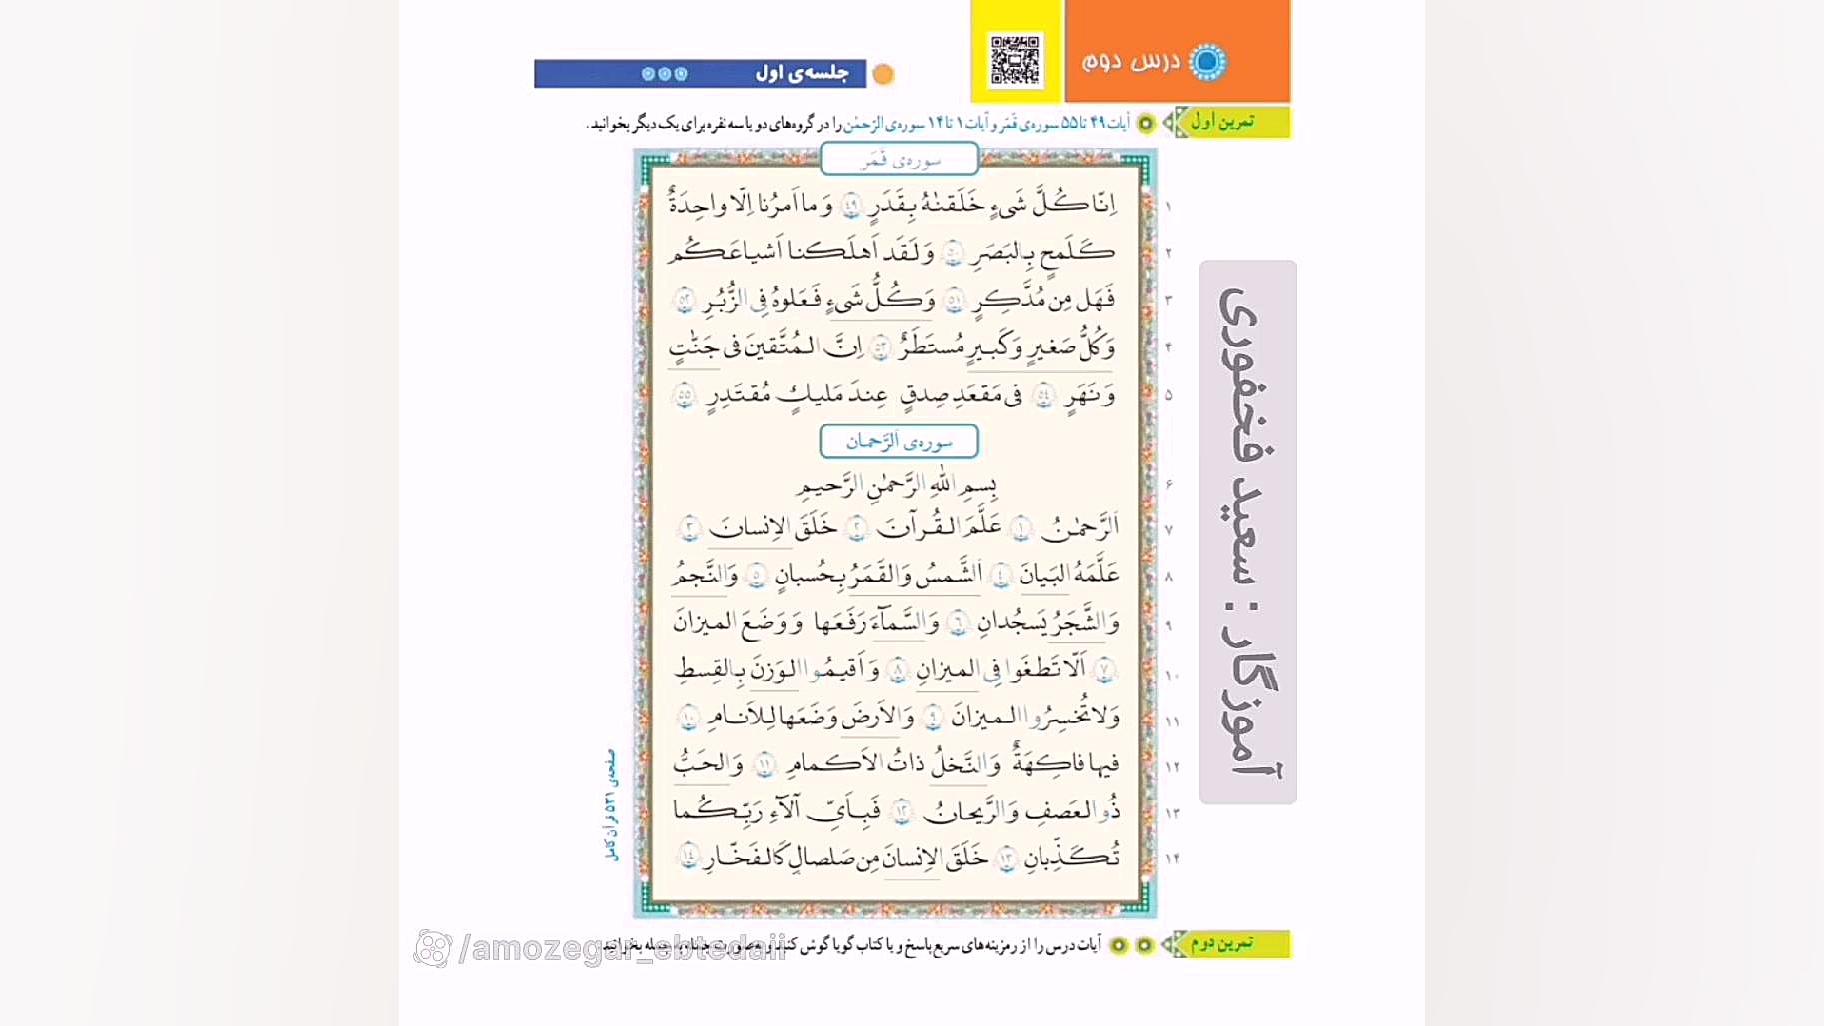 درس دوم
جلسه‌ی اول
تمرین اول
آیات ۴۹ تا ۵۵ سوره‌ی قَمَر و آیات ۱ تا ۱۴ سوره‌ی الرَّحمٰن را در گروه‌های دو یا سه نفره برای یک دیگر بخوانید.
سوره‌ی قَمَر
۱ اِنّا كُلَّ شَیءٍ خَلَقنٰهُ بِقَدَرٍ ٤٩ وَ ما اَمرُنا اِلّا واحِدَةٌ
۲ كَلَمحٍ بِالبَصَرِ ٥٠ وَ لَقَد اَهلَكنا اَشیاعَكُم
۳ فَهَل مِن مُدَّكِرٍ ٥١ وَ كُلُّ شَیءٍ فَعَلوهُ فِی الزُّبُرِ ٥٢
۴ وَ كُلُّ صَغیرٍ وَ كَبیرٍ مُستَطَرٌ ٥٣ اِنَّ المُتَّقینَ فی جَنّٰتٍ
۵ وَ نَهَرٍ ٥٤ فی مَقعَدِ صِدقٍ عِندَ مَلیكٍ مُقتَدِرٍ ٥٥
سوره‌ی اَلرَّحمان
۶ بِسمِ اللّٰهِ الرَّحمٰنِ الرَّحیمِ
۷ اَلرَّحمٰنُ ١ عَلَّمَ القُرآنَ ٢ خَلَقَ الاِنسانَ ٣
۸ عَلَّمَهُ البَیانَ ٤ اَلشَّمسُ وَ القَمَرُ بِحُسبانٍ ٥ وَ النَّجمُ
۹ وَ الشَّجَرُ یَسجُدانِ ٦ وَ السَّمآءَ رَفَعَها وَ وَضَعَ المیزانَ
۱۰ ٧ اَلّا تَطغَوا فِی المیزانِ ٨ وَ اَقیمُوا الوَزنَ بِالقِسطِ
۱۱ وَ لا تُخسِرُوا المیزانَ ٩ وَ الاَرضَ وَضَعَها لِلاَنامِ ١٠
۱۲ فیها فاكِهَةٌ وَ النَّخلُ ذاتُ الاَكمامِ ١١ وَ الحَبُّ
۱۳ ذُو العَصفِ وَ الرَّیحانُ ١٢ فَبِاَیِّ آلآءِ رَبِّكُما
۱۴ تُكَذِّبانِ ١٣ خَلَقَ الاِنسانَ مِن صَلصالٍ كَالفَخّارِ ١٤
صفحه‌ی ۵۳۱ قرآن کامل
آموزگار : سعید فخفوری
تمرین دوم
آیات درس را از رمزینه‌های سریع پاسخ و یا کتاب گویا گوش کنید و به‌صورت جمله به جمله بخوانید
/amozegar_ebtedaii